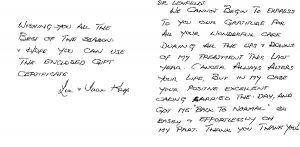 WISHING YOU ALL THE
BEST OF THE SEASON.
HOPE YOU CAN USE
THE ENCLOSED GIFT
CERTIFICATE
DR.
WE CANNOT BEGIN TO EXPRESS
TO YOU OUR GRATITUDE FOR
ALL YOUR WONDERFUL CARE
DURING ALL THE UPS & DOWNS
OF MY TREATMENT THIS LAST
YEAR. CANCER ALWAYS ALTERS
YOUR LIFE, BUT IN MY CASE
YOUR POSITIVE EXCELLENT
CARING CARRIED THE DAY, AND
GOT ME "BACK TO NORMAL" SO
EASILY & EFFORTLESSLY ON
MY PART. THANK YOU THANK YOU!